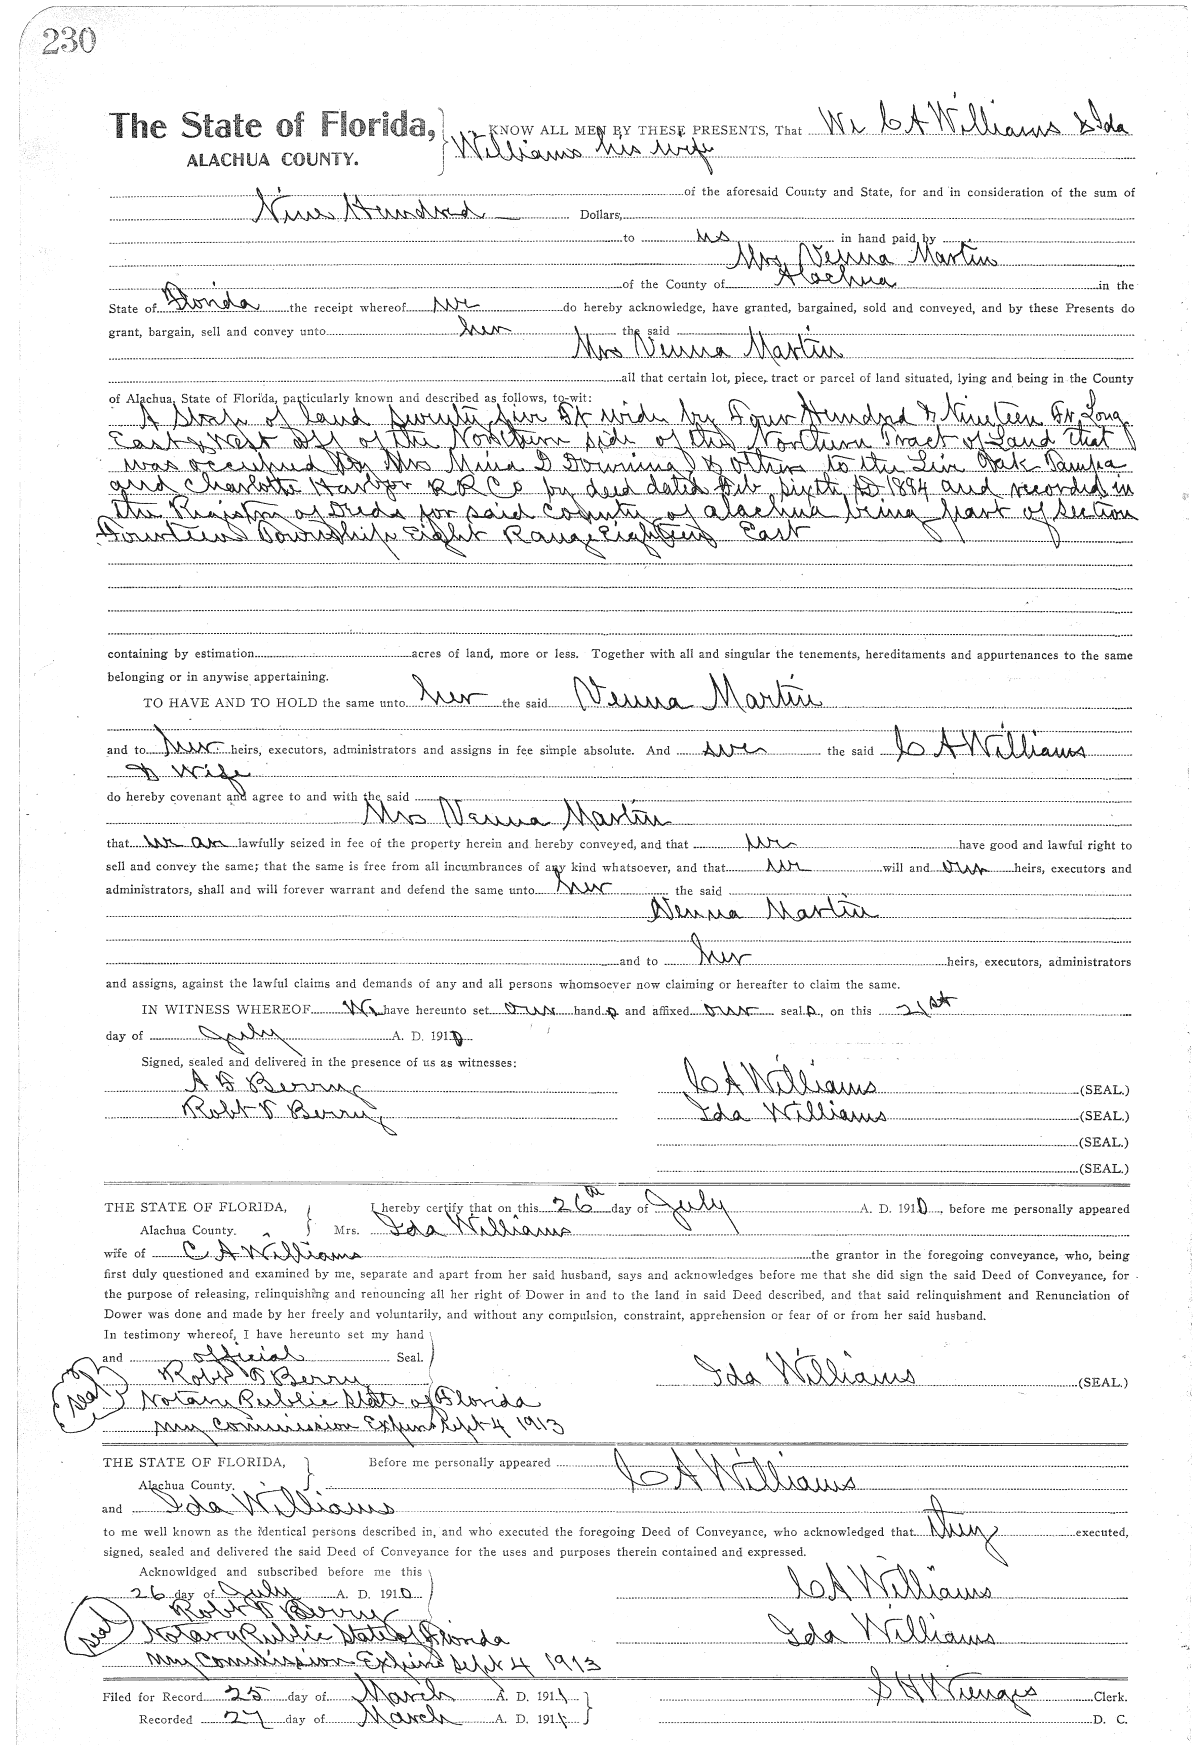 230
The State of Florida, KNOW ALL MEN BY THESE PRESENTS, That We C A Williams & Ida
ALACHUA COUNTY. Williams his wife
of the aforesaid County and State, for and in consideration of the sum of
Nine Hundred Dollars,
to us in hand paid by
Mrs Venna Martin
of the County of Alachua in the
State of Florida the receipt whereof we do hereby acknowledge, have granted, bargained, sold and conveyed, and by these Presents do
grant, bargain, sell and convey unto her the said
Mrs Venna Martin
all that certain lot, piece, tract or parcel of land situated, lying and being in the County
of Alachua, State of Florida, particularly known and described as follows, to-wit:
A Strip of land seventy five Ft wide by Four Hundred & Nineteen Ft Long
East & West off of the Northern side of the Northern Tract of Land that
was occupied by Mrs Mina D Downing & others to the Live Oak Tampa
and Charlotte Harbor R R Co by deed dated Feb sixth AD 1894 and recorded in
the Registry of Deeds for said County of Alachua being part of Section
Fourteen Township Eight Range Eighteen East
containing by estimation acres of land, more or less. Together with all and singular the tenements, hereditaments and appurtenances to the same
belonging or in anywise appertaining.
TO HAVE AND TO HOLD the same unto her the said Venna Martin
and to her heirs, executors, administrators and assigns in fee simple absolute. And we the said C A Williams
& Wife
do hereby covenant and agree to and with the said
Mrs Venna Martin
that we are lawfully seized in fee of the property herein and hereby conveyed, and that we have good and lawful right to
sell and convey the same; that the same is free from all incumbrances of any kind whatsoever, and that we will and our heirs, executors and
administrators, shall and will forever warrant and defend the same unto her the said
Venna Martin
and to her heirs, executors, administrators
and assigns, against the lawful claims and demands of any and all persons whomsoever now claiming or hereafter to claim the same.
IN WITNESS WHEREOF We have hereunto set our hands and affixed our seals, on this 21st
day of July A. D. 1910
Signed, sealed and delivered in the presence of us as witnesses:
A F Berry C A Williams (SEAL.)
Robt T Berry Ida Williams (SEAL.)
(SEAL.)
(SEAL.)
THE STATE OF FLORIDA, I hereby certify that on this 26th day of July A. D. 1910, before me personally appeared
Alachua County. Mrs. Ida Williams
wife of C A Williams the grantor in the foregoing conveyance, who, being
first duly questioned and examined by me, separate and apart from her said husband, says and acknowledges before me that she did sign the said Deed of Conveyance, for
the purpose of releasing, relinquishing and renouncing all her right of Dower in and to the land in said Deed described, and that said relinquishment and Renunciation of
Dower was done and made by her freely and voluntarily, and without any compulsion, constraint, apprehension or fear of or from her said husband.
In testimony whereof, I have hereunto set my hand
and official Seal.
Robt T Berry Ida Williams (SEAL.)
(seal) Notary Public State of Florida
My Commission Expires Sept 4 1913
THE STATE OF FLORIDA, Before me personally appeared C A Williams
Alachua County.
and Ida Williams
to me well known as the identical persons described in, and who executed the foregoing Deed of Conveyance, who acknowledged that they executed,
signed, sealed and delivered the said Deed of Conveyance for the uses and purposes therein contained and expressed.
Acknowldged and subscribed before me this
26 day of July A. D. 1910 C A Williams
Robt T Berry
(seal) Notary Public State of Florida Ida Williams
My Commission Expires Sept 4 1913
Filed for Record 25 day of March A. D. 1911 S H Wienges Clerk.
Recorded 27 day of March A. D. 1911 D. C.